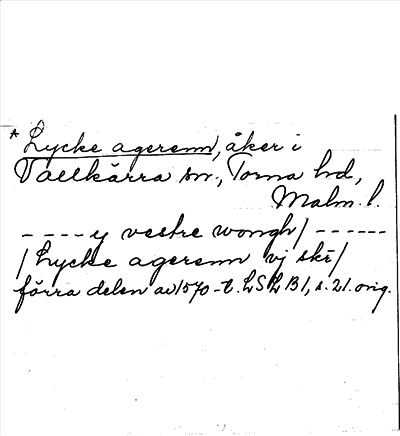 * Lycke agerenn, åker i
Vallkärra sn., Torna hd,
Malm. l.
---- y vestre wongh/ ------
/ Lycke agerenn vj skr/
förra delen av 1570-t. LSLB1, s. 21. orig.